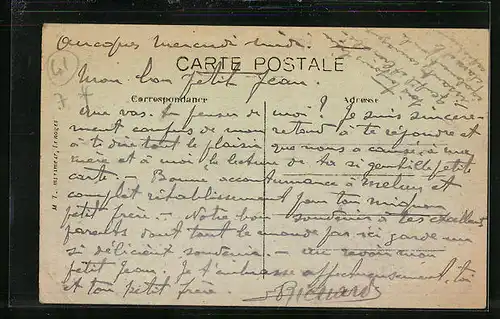 mercredi midi.
CARTE POSTALE
41
Mon bon petit Jean.
Correspondance
Adresse
Que vas-tu penser de moi? Je suis sincère-
ment confus de mon retard à te répondre et
à te dire tout le plaisir que nous a causé, à ma
mère et à moi la lecture de ta si gentille petite
carte. - Bonne accoutumance à et
complet rétablissement pour ton mignon
petit frère. - Notre bon souvenir à tes excellents
parents dont tout le monde par ici garde un
si délicieux souvenir. - Au revoir mon
petit Jean, je t'embrasse affectueusement, toi
et ton petit frère.
M. T. Limoges